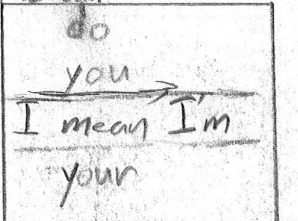 do
you
I mean I'm
your